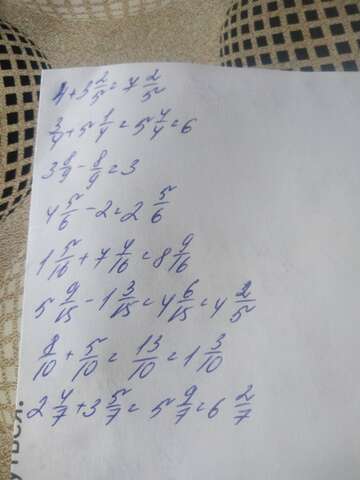 4+3 2/5=7 2/5
3/4+5 1/4=5 4/4=6
3 8/9-8/9=3
4 5/6-2=2 5/6
1 5/16+7 4/16=8 9/16
5 9/15-1 3/15=4 6/15=4 2/5
8/10+5/10=13/10=1 3/10
2 4/7+3 5/7=5 9/7=6 2/7
ться.